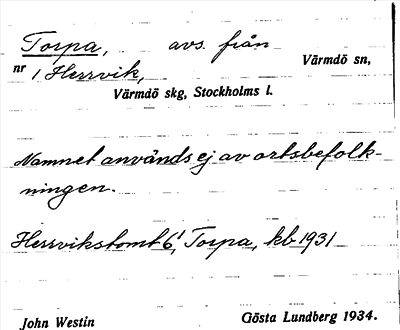 Torpa, avs. från Värmdö sn,
nr 1 Herrvik,
Värmdö skg, Stockholms l.
Namnet används ej av ortsbefolk-
ningen.
Herrvikstomt 6¹, Torpa, kb 1931
John Westin Gösta Lundberg 1934.